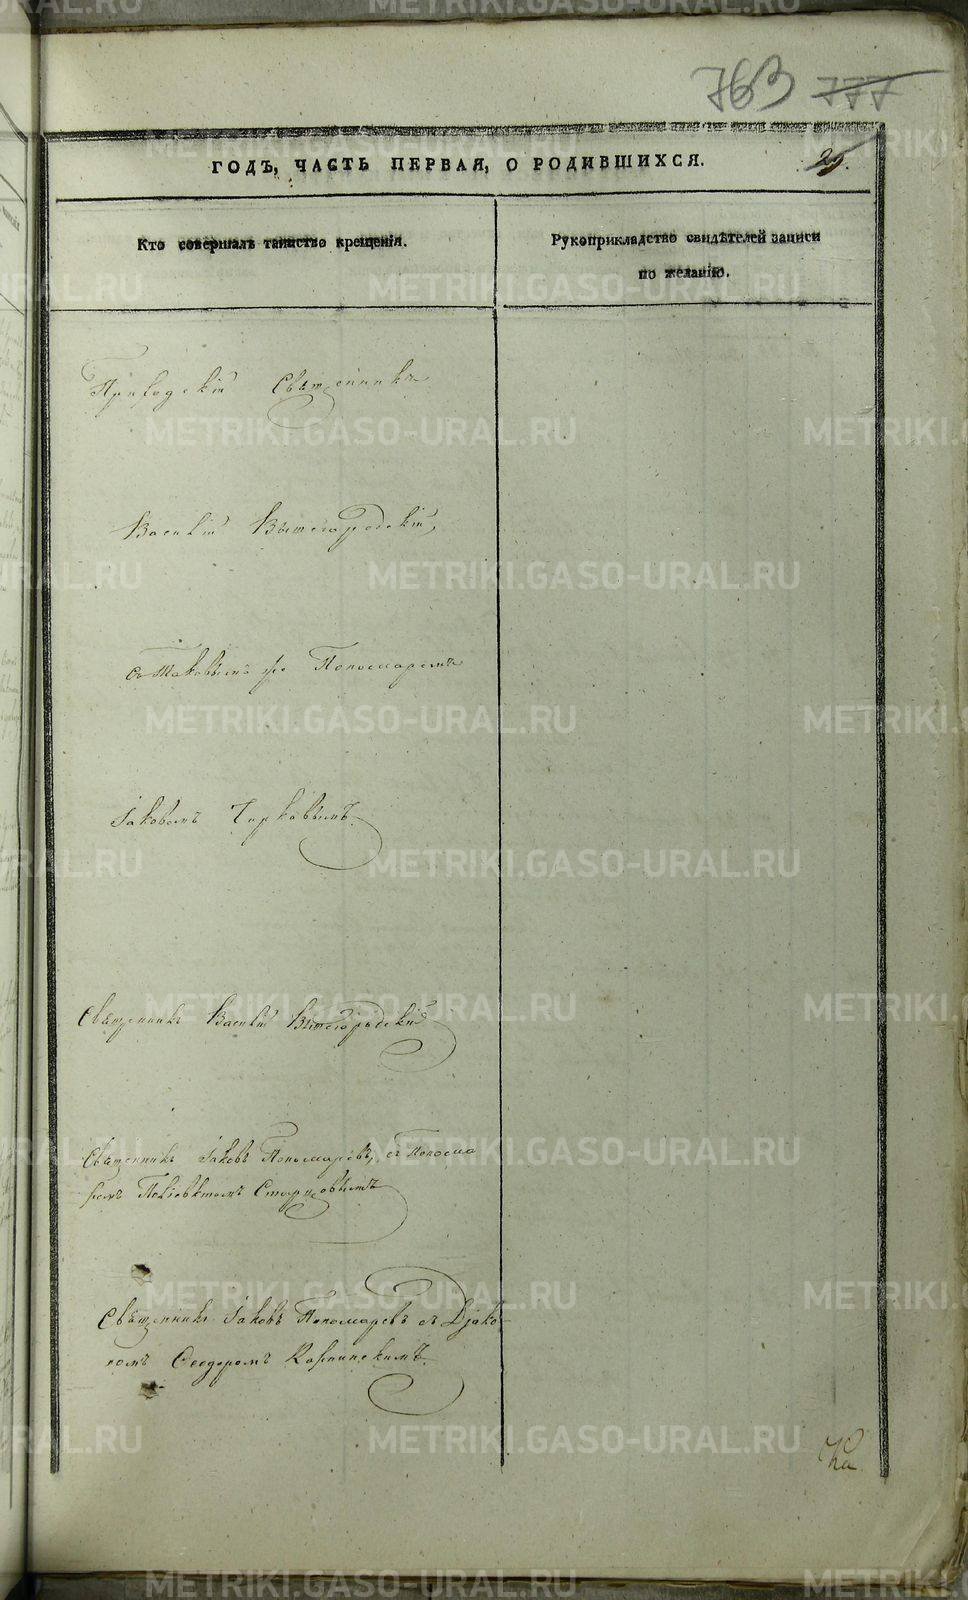 763 777
ГОДЪ, ЧАСТЬ ПЕРВАЯ, О РОДИВШИХСЯ. 25.
Кто совершалъ таинство крещенія.
Рукоприкладство свидѣтелей записи
по желанію.
Приходскій Священникъ
Василій Вышегородскій,
съ таковымъ же Пономаремъ
Іаковомъ Чирковымъ.
Священникъ Василій Вышегородскій
Священникъ Іаковъ Пономаревъ, съ Понома
ремъ Поліевктомъ Старцовымъ
Священникъ Іаковъ Пономаревъ съ Діако-
номъ Ѳеодоромъ Карпинскимъ.
METRIKI.GASO-URAL.RU